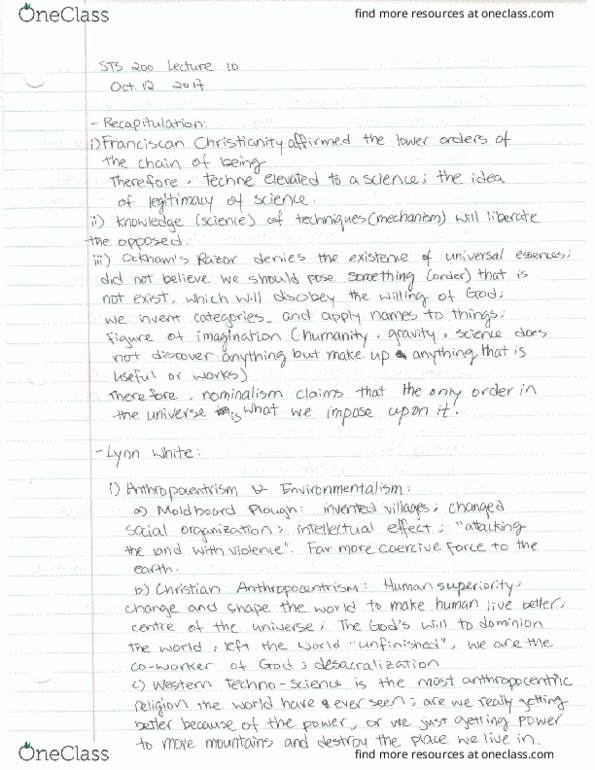 OneClass
find more resources at oneclass.com
STS 200 Lecture 10
Oct. 12 2017
- Recapitulation:
i) Franciscan Christianity affirmed the lower orders of
the chain of being
Therefore, techne elevated to a science; the idea
of legitimacy of science.
ii) knowledge (science) of techniques (mechanism) will liberate
the opposed.
iii) Ockham's Razor denies the existence of universal essences;
did not believe we should pose something (order) that is
not exist, which will disobey the willing of God;
we invent categories, and apply names to things;
figure of imagination (humanity, gravity, science does
not discover anything but make up anything that is
useful or works)
Therefore, nominalism claims that the only order in
the universe is what we impose upon it.
- Lynn White:
1) Anthropocentrism & Environmentalism:
a) Moldboard Plough: invented villages; changed
social organization; intellectual effect; "attacking
the land with violence". Far more coercive force to the
earth.
b) Christian Anthropocentrism: Human superiority;
change and shape the world to make human live better;
centre of the universe; The God's will to dominion
the world, left the world "unfinished", we are the
co-worker of God; desacralization
c) Western techno-science is the most anthropocentric
religion the world have ever seen; are we really getting
better because of the power, or we just getting power
to move mountains and destroy the place we live in.
OneClass
find more resources at oneclass.com